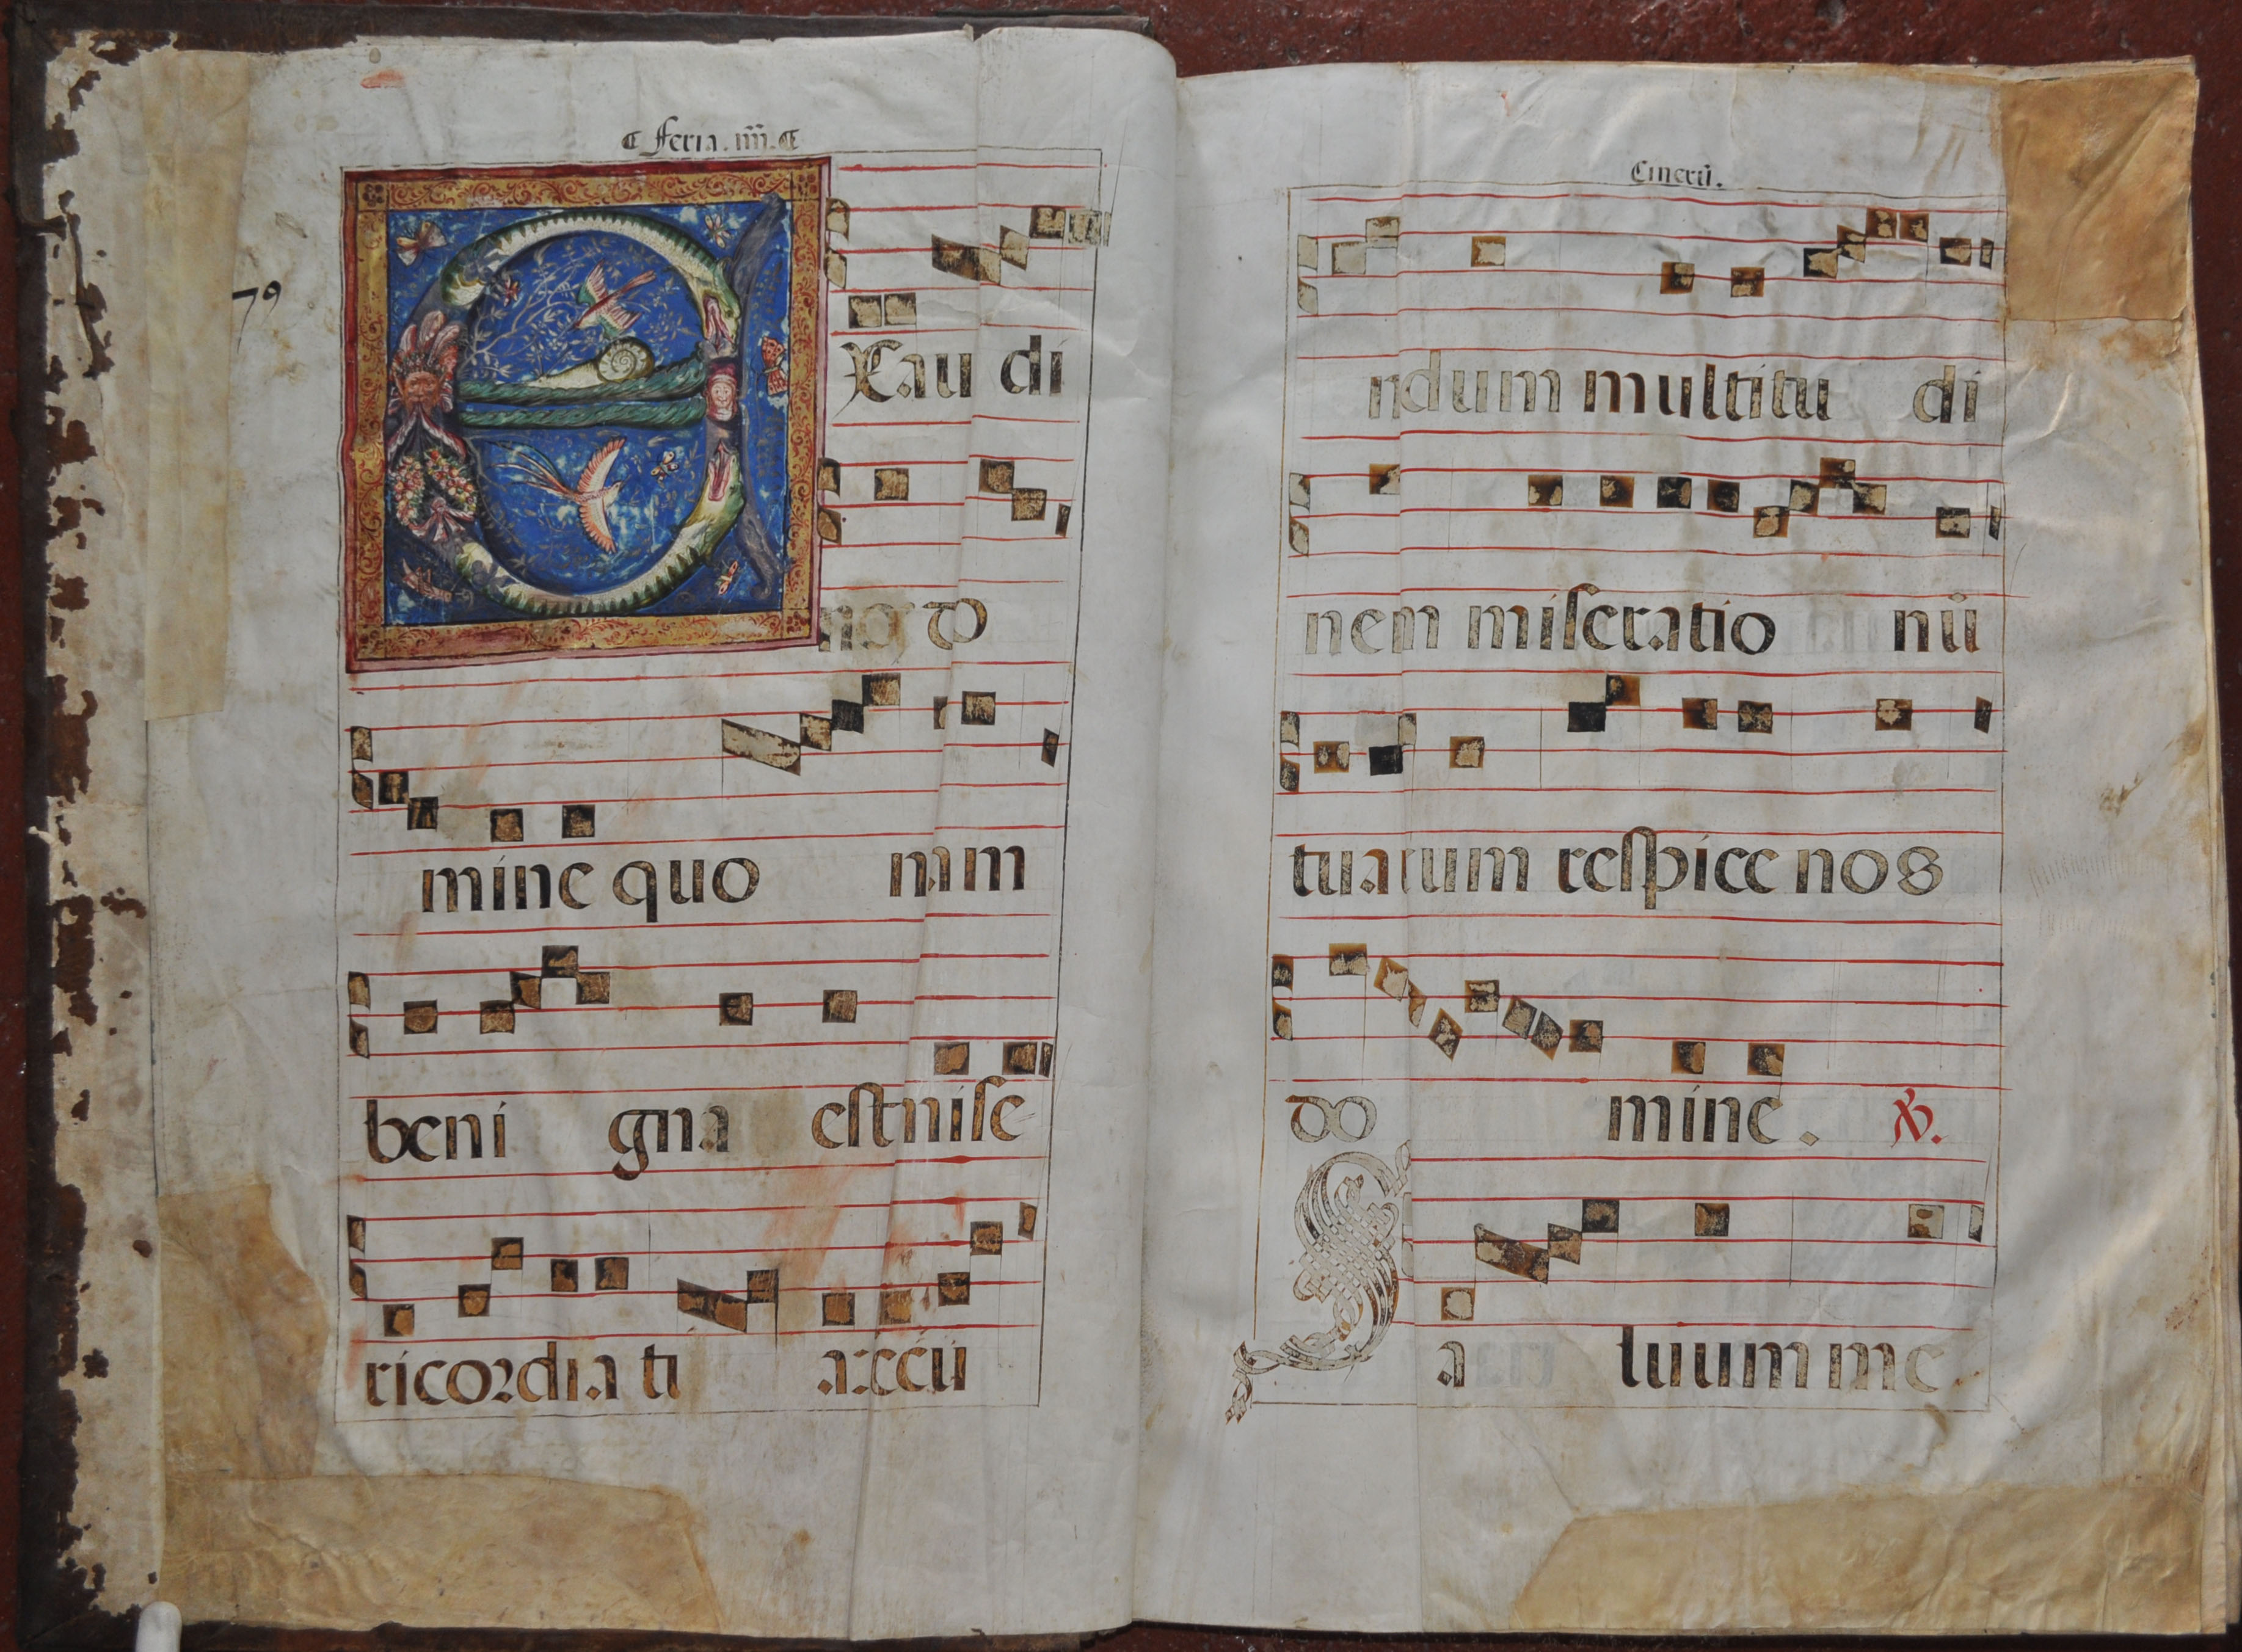 ¶ feria. iiii. ¶
79
EXau di
nos do
mine quo niam
beni gna est mise
ricordia tu a: secũ
Cinerũ.
ndum multitu di
nem miseratio nũ
tuarum respice nos
do mine. ℣.
Sa luum me